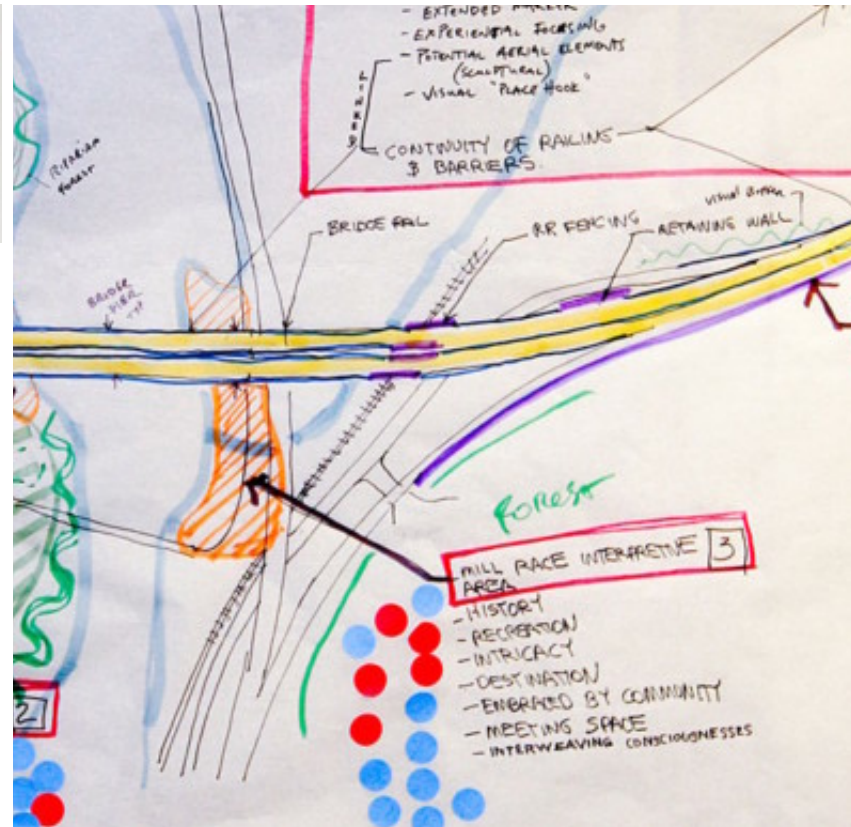 - EXTENDED
- EXPERIENTIAL FOCUSING
- POTENTIAL AERIAL ELEMENTS
(SCULPTURAL)
- VISUAL "PLACE HOOK"
LINKED
CONTINUITY OF RAILING
& BARRIERS.
RIPARIAN
FOREST
BRIDGE RAIL
RR FENCING
RETAINING WALL
BRIDGE
PIER
TYP
FOREST
MILL RACE INTERPRETIVE 3
AREA
- HISTORY
- RECREATION
- INTRICACY
- DESTINATION
- EMBRACED BY COMMUNITY
- MEETING SPACE
- INTERWEAVING CONSCIOUSNESSES
2